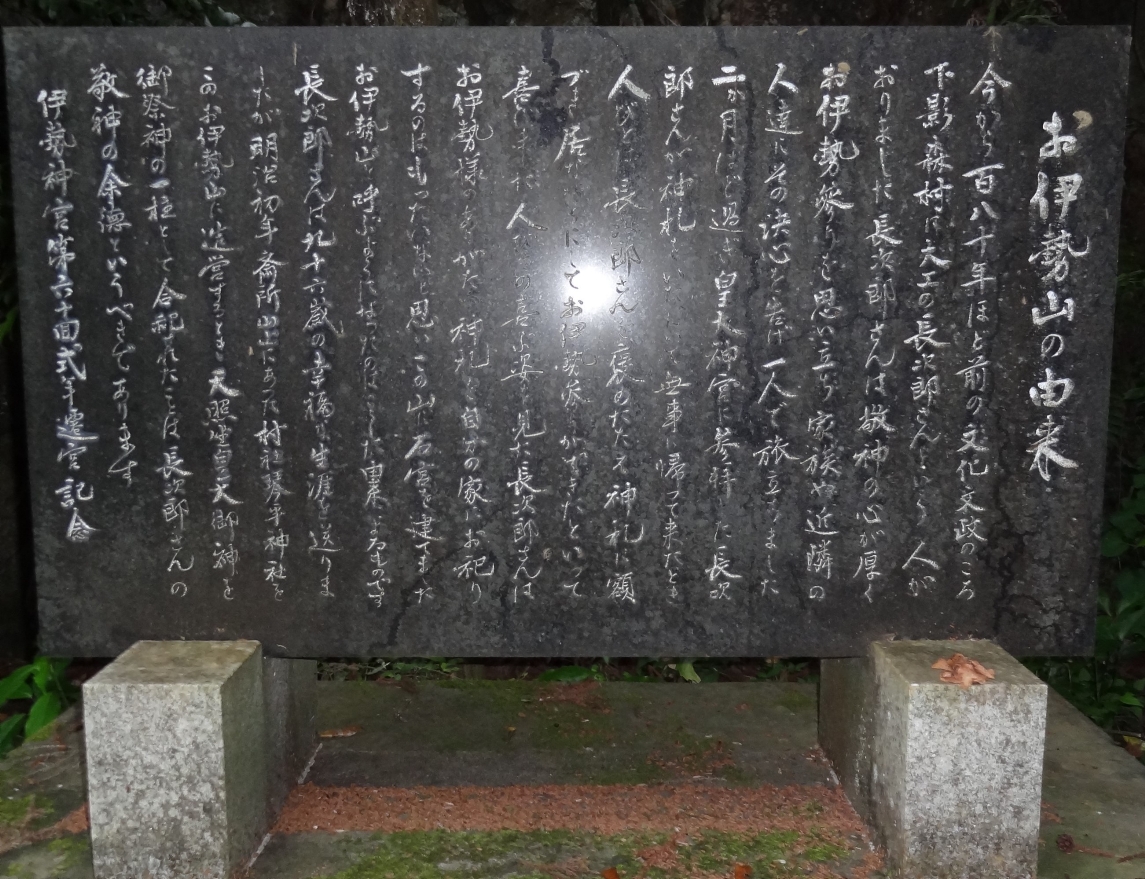 お伊勢山の由来
今から百八十年ほど前の文化文政のころ
下影森村に大工の長次郎さんという人が
おりました長次郎さんは敬神の心が厚く
お伊勢参りを思い立ち家族や近隣の
人達にその決心を告げ一人で旅立ちました
二か月ほど過ぎ皇大神宮に参拝した長次
郎さんが神札をいただいて無事に帰って来たとき
人びとは長次郎さんを褒めたたえ神札に額
づき居ながらにしてお伊勢参りができたといって
喜びました人びとの喜ぶ姿を見た長次郎さんは
お伊勢様のありがたい神札を自分の家にお祀り
するのはもったいないと思いこの山に石宮を建てまた
お伊勢山と呼ぶようになったのはこうした由来によるものです
長次郎さんは九十六歳の幸福な生涯を送りま
したが明治初年斎所山にあった村社琴平神社を
このお伊勢山に造営するとき天照坐皇大御神を
御祭神の一柱として合祀されたことは長次郎さんの
敬神の余徳というべきであります
伊勢神宮第六十回式年遷宮記念